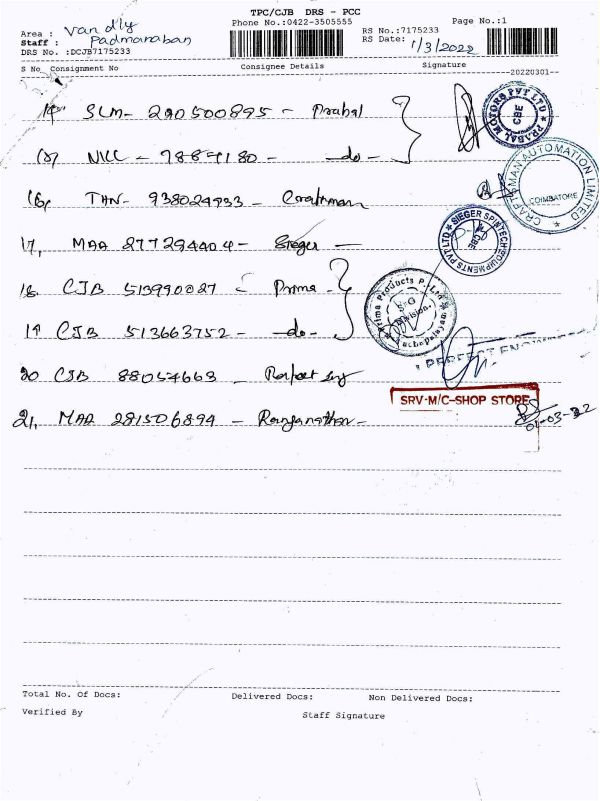 TPC/CJB DRS - PCC
Phone No.:0422-3505555
Page No.:1
Area : Van dly
Staff : Padmanaban
DRS No. :DCJB7175233
RS No.:7175233
RS Date: 1/3/2022
S No Consignment No Consignee Details Signature
20220301
SLM- 290500895 - Prabal
- do -
16, 938024933 - Craftsman
17, MAA 277294404 - Sieger -
18. CJB 513990027 - Prima -
19 CJB 513663752 - - do -
20 CJB 88054663 - Perfect Eng
21, MAA 281506894 - Ranganathan -
PRABAL MOTORS PVT LTD CBE
CRAFTSMAN AUTOMATION LIMITED COIMBATORE
SIEGER SPINTECH EQUIPMENTS PVT LTD
Prima Products P. Ltd S-G Division.
PERFECT ENG
SRV-M/C-SHOP STORE
01-03-22
Total No. Of Docs: Delivered Docs: Non Delivered Docs:
Verified By Staff Signature